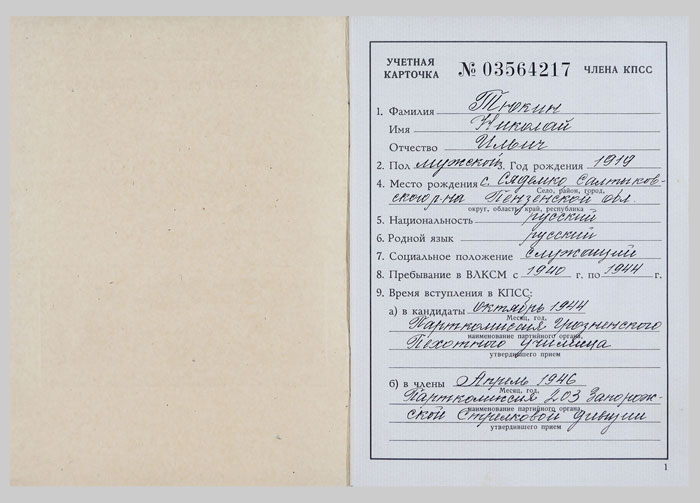 УЧЕТНАЯ КАРТОЧКА № 03564217 ЧЛЕНА КПСС
1. Фамилия Тюкин
Имя Николай
Отчество Ильич
2. Пол мужской 3. Год рождения 1919
4. Место рождения с. Сядемко Салтыков-
Село, район, город,
ского р-на Пензенской обл.
округ, область, край, республика
5. Национальность русский
6. Родной язык русский
7. Социальное положение служащий
8. Пребывание в ВЛКСМ с 1940 г. по 1944 г.
9. Время вступления в КПСС:
а) в кандидаты октябрь 1944
Месяц, год,
Парткомиссия Грозненского
наименование партийного органа,
Пехотного училища
утвердившего прием
б) в члены Апрель 1946
Месяц, год,
Парткомиссия 203 Запорож-
наименование партийного органа,
ской Стрелковой дивизии
утвердившего прием
1